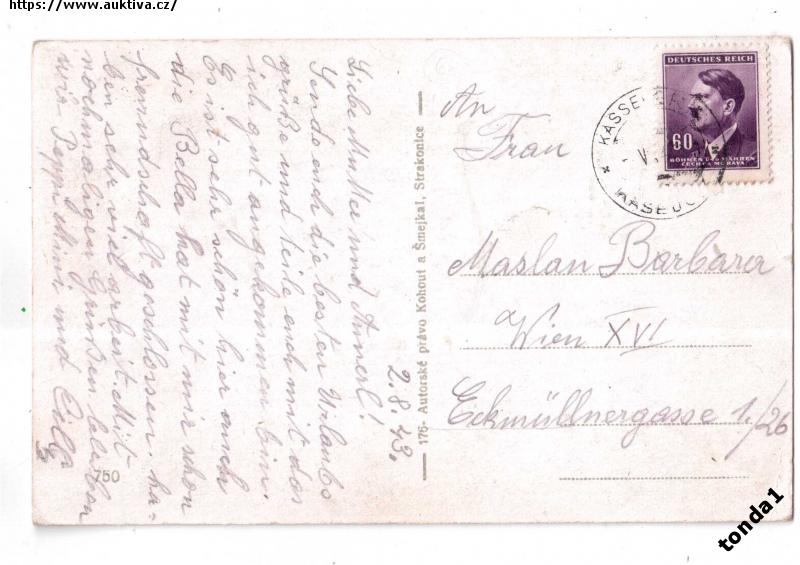 https://www.auktiva.cz/
2.8.43.
Liebe Mutter und Annerl!
Sende euch die besten Urlaubs
grüße und teile euch mit das
ich gut angekommen bin.
Es ist sehr schön hier auch
die Bella hat mit mir schon
freundschaft geschlossen. ha-
ben sehr viel arbeit. Mit
nochmaligen Grüßen
wir Peppi Mimi und
750
176- Autorské právo Kohout a Šmejkal, Strakonice
An
Frau
Maslan Barbara
Wien XVI
Eckmüllnergasse 1/26
DEUTSCHES REICH
60
BÖHMEN UND MÄHREN
ČECHY A MORAVA
KASEJO
tonda1